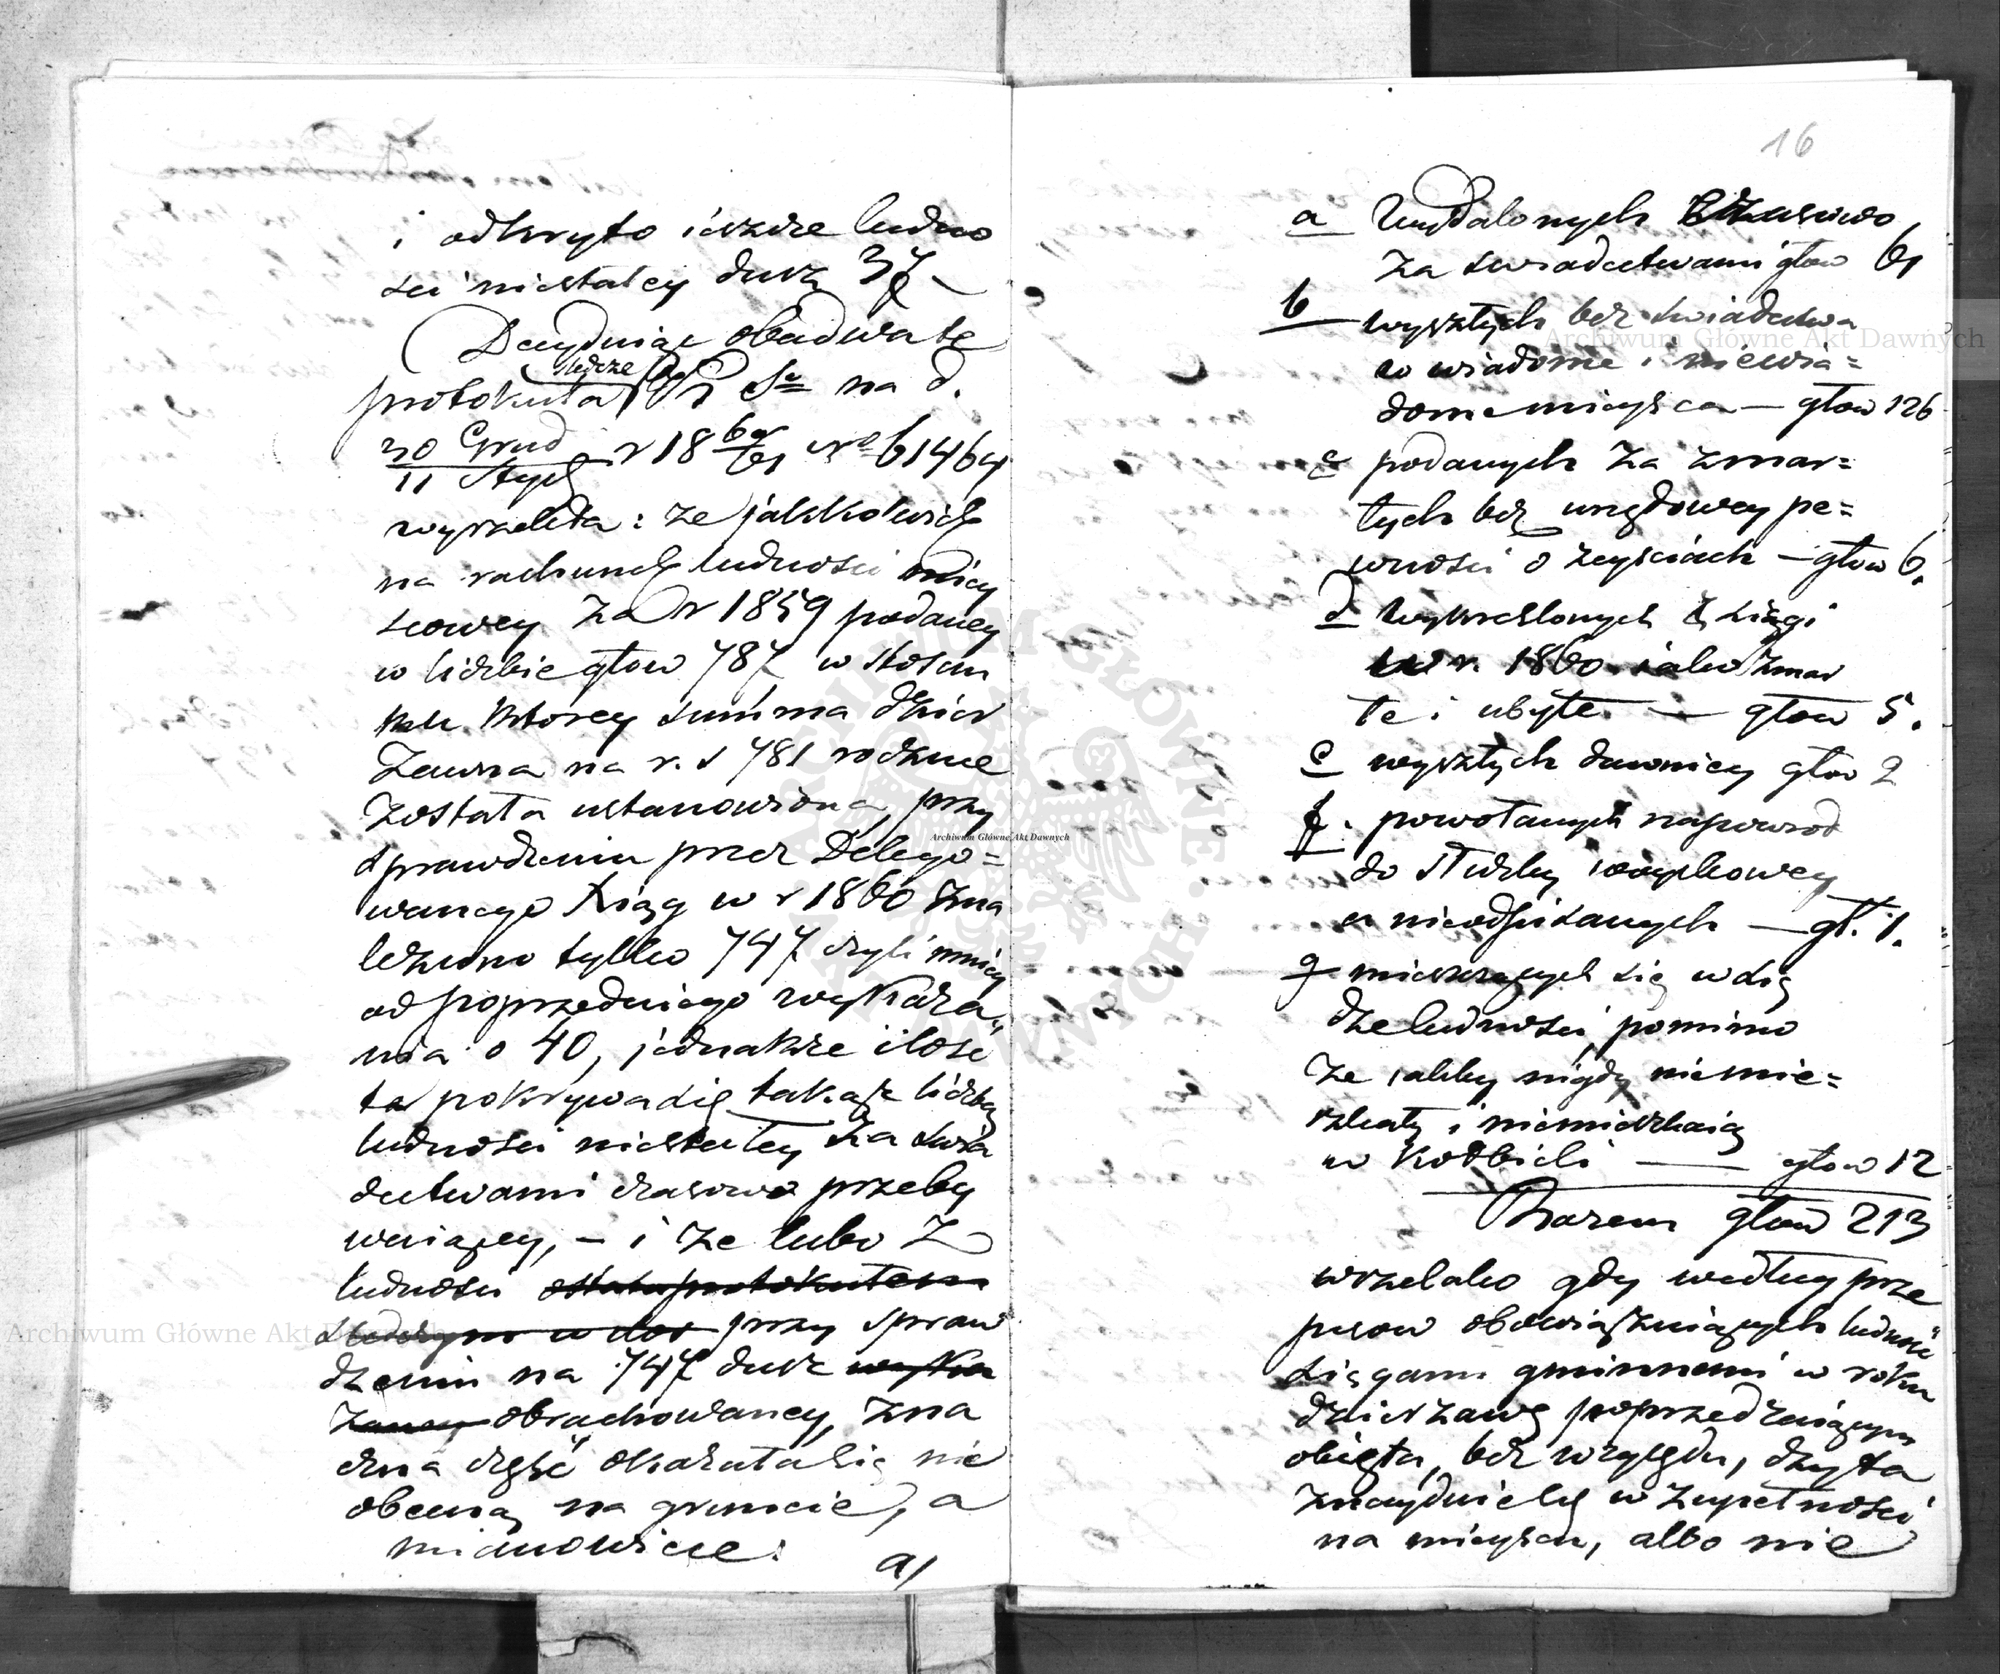 i odkryto ieszcze ludno
sci niestałey dusz 37 —
Decyduiąc obadwa te
śledcze
protokuła na d.
30 Grud r 18 60/61 No 61464
11 Stycz
wyrzekła: że jakkolwiek
na rachunek ludności miey
scowey za r 1859 podaney
w liczbie głow 787 w stosun
ku ktorey summa dzier
żawna na r. s 781 rocznie
została ustanowiona, przy
sprawdzeniu przez Delego=
wanego Xiąg w r 1860 zna
leziono tylko 747 czyli mniey
od poprzedniego wykaza
nia o 40, jednakże ilosc
ta pokrywa się takąż liczbą
ludności niestałey za swia
dectwami czasowo przeby
waiącey, — i że lubo z
ludności
przy spraw
dzeniu na 747 dusz
obrachowaney, zna
czna część okazała się nie
obecną na gruncie, a
mianowicie:
a/
16
a Wydalonych czasowo
za swiadectwami głow 61
b wyszłych bez swiadectwa
w wiadome i niewia=
dome mieysca — głow 126
c podanych za zmar=
łych bez urzędowey pe=
wności o zeyściach — głow 6.
d wykreslonych z xiągi
w r. 1860 iako zmar
łe i ubyłe — głow 5.
e wyszłych dawniey głow 2
f. powołanych napowrod
do służby woyskowey
a nieodpisanych — gł. 1.
g mieszczących się w xię
dze ludności, pomimo
że iakby nigdy niemie=
szkały i niemieszkaią
w Kołbieli — głow 12
Razem głow 213
wszelako gdy według prze
pisow obowiązuiących ludność
xięgami gminnemi w roku
dzierżawę poprzedzaiącym
obięta, bez względu, czy ta
znayduie się w zupełności
na mieyscu, albo nie
Archiwum Główne Akt Dawnych
Archiwum Główne Akt Dawnych
Archiwum Główne Akt Dawnych